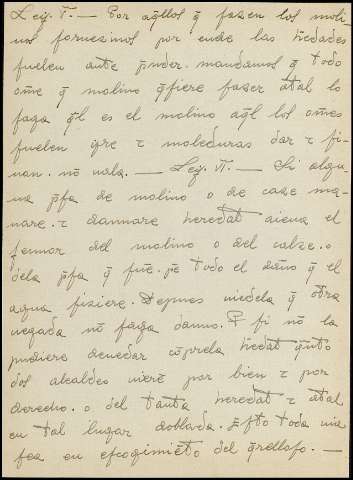 Ley. V. — Por aq̃llos q̃ fazen los moli-
nos fornezinos por ende las h̃edades
suelen ante p̃nder. mandamos q̃ todo
om̃e q̃ molino q̃siere fazer atal lo
faga q̃l es el molino aq̃l los om̃es
suelen q̃re τ moleduras dar τ fi-
nan. nõ uala. — Ley. VI. — Si algu-
na p̃sa de molino o de case ma-
nare. τ dannare heredat aiena el
sennor del molino o del calze. o
dela p̃sa q̃ fue. p̃e todo el dãno q̃ el
agua fiziere. Depues uiedela q̃ otra
uegada nõ faga danno. E si no la
pudiere deuedar cõprela h̃edat q̃nto
dos alcaldes uierẽ por bien τ por
derecho. o del tanta heredat τ atal
en tal lugar doblada. Esto toda uia
sea en escogimiẽto del q̃relloso. —